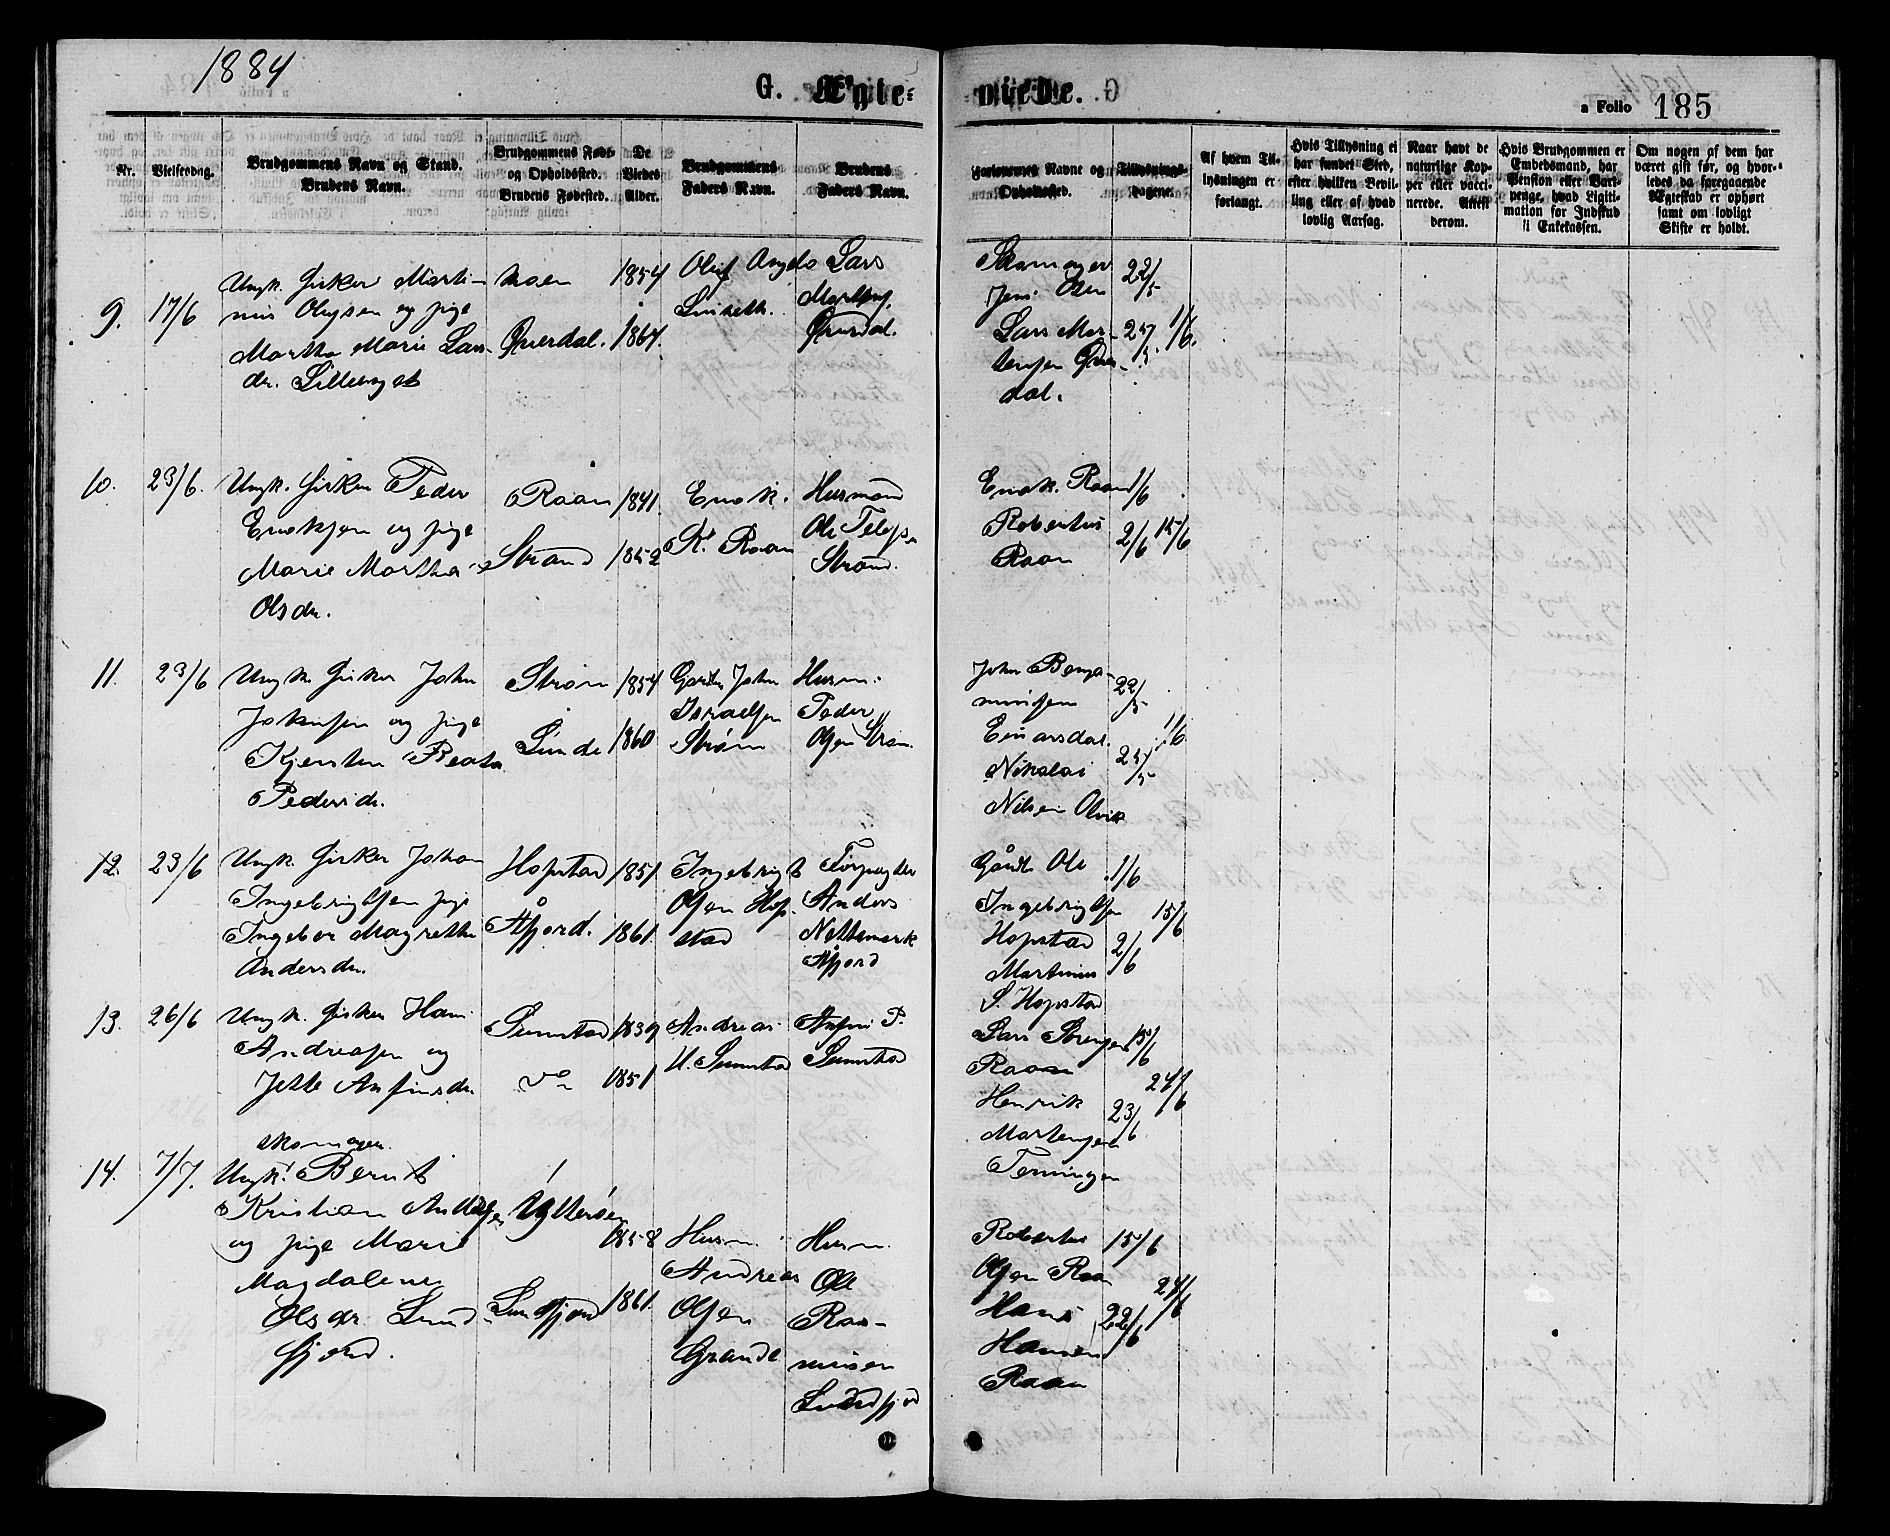 1884
G. Ægte=
viede.
a Folio 185
Nr.
Vielsesdag.
Brudgommens Navn og Stand.
Brudens Navn.
BrudgommensFøde-
og Opholdssted.
Brudens Fødested.
De
Viedes
Alder.
Brudgommens
Faders Navn.
Brudens
Faders Navn.
Forlovernes Navne og
Opholdssted.
Tillysnings-
dagene.
Af hvem Til-
lysningen er
forlangt.
Hvis Tillysning ei
har fundet Sted,
efter hvilken Bevil-
ling eller af hvad
lovlig Aarsag.
Naar havt de
naturlige Kop-
per eller vacci-
nerede. Attest
derom.
Hvis Brudgommen er
Embedsmand, har
Pension eller Vart-
penge, hvad Ligiti-
mation for Indskud
i Enkekassen.
Om nogen af dem har
været gift før, og hvor-
ledes da foregaaende
Ægteskab er ophørt
samt om lovligt
Skifte er holdt.
9. 17/6
Ungk. Fisker Marti-
nus Olufsen og pige
Martha Marie Lars-
dr.
1854
Øverdal. 1864.
Oluf
Lars
Martens.
Øverdal.
Skomager
Jens Olsen
Lars Mor-
tensen Øver-
dal.
22/5
25/5. 1/6.
10. 23/6.
Ungk. Fisker Peder
Enoksen og pige
Marie Martha
Olsdr.
Raan 1841.
Strand 1852
Enok.
K. Raan
Husmand
Ole
Strand.
Enok. Raan
Robertus
Raan
1/6
2/6 15/6
11. 23/6
Ungk. Fisker John
Johnsen og pige
Kjersten Beata
Pedersdr.
Strøm 1854
Lunde 1860
Gaardbr. John
Israelsen
Strøm
Husm.
Peder
Olsen
John Benja-
minsen
Einarsdal.
Nikolai
Nilsen Olvik
22/5
25/5
1/6
12. 23/6
Ungk. Fisker Johan
Ingebrigtsen pige
Ingebor Magrethe
Andersdr.
Hopstad 1851
Åfjord. 1861.
Ingebrigt
Olsen Hop-
stad
Forpagter
Anders
Åfjord
Gårdb. Ole
Ingebrigtsen
Hopstad
Martinus
S. Hopstad
1/6
2/6
15/6
13. 26/6
Ungk. Fisker Hans
Andreasen og
Jette Anfinsdr.
Sumstad 1839
do 1851
Andreas
H. Sumstad
Anfin P.
Sumstad
Lars Sørensen
Raan
Henrik
Mortensen
Terningen
15/6
23/6
24/6
14. 7/7.
skomager.
Ungk. Bernt
Kristian Andersen
og pige Marie
Magdalena
Olsdr. Lund-
fjord.
Ytterøen
1858
Lundfjord 1861.
Husm.
Andreas
Olsen
Grande
Husm.
Ole
Ras-
musen
Lundfjord
Robertus
Olsen Raan
Hans
Hansen
Raan
15/6
22/6
24/6